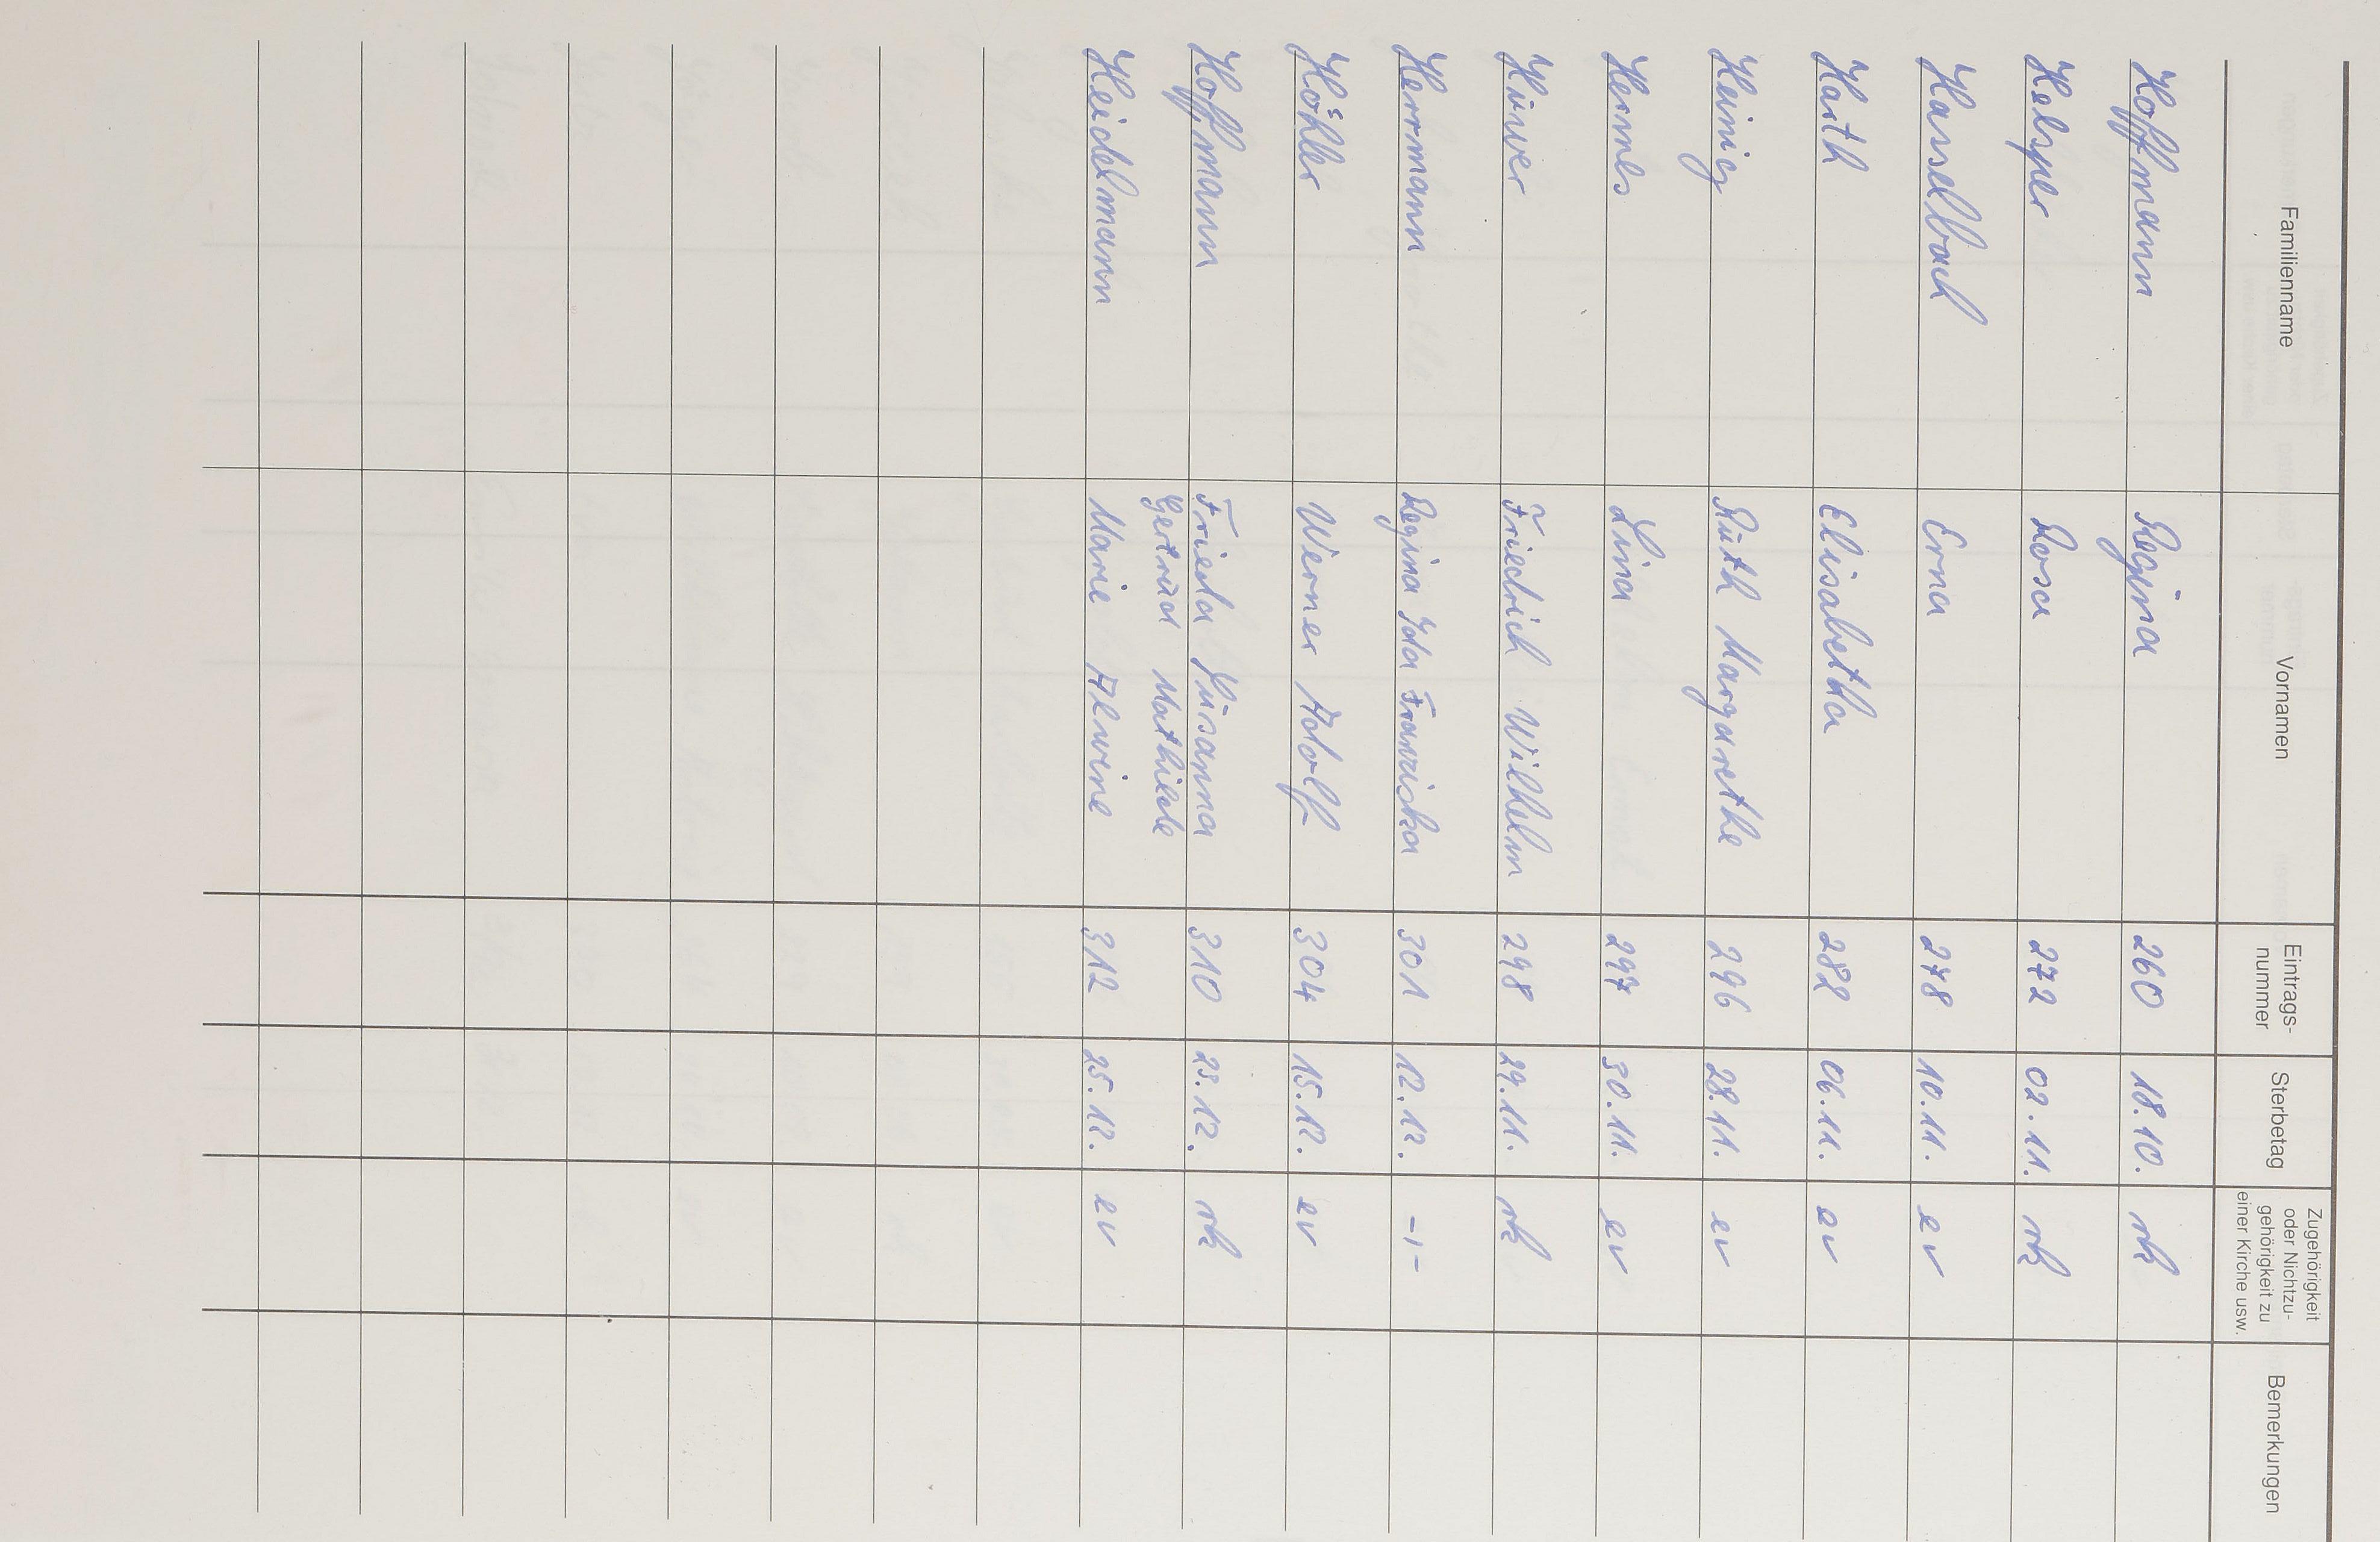 Familienname Vornamen Eintrags-nummer Sterbetag Zugehörigkeit oder Nichtzu-gehörigkeit zu einer Kirche usw. Bemerkungen
Hoffmann Regina 260 18.10. rk
Helsper Rosa 272 02.11. rk
Hasselbach Erna 278 10.11. ev
Harth Elisabetha 282 06.11. ev
Heinig Ruth Margarethe 296 28.11. ev
Hermes Lina 297 30.11. ev
Hüwer Friedrich Wilhelm 298 29.11. rk
Herrmann Regina Ida Franziska 301 12.12. -,-
Höhler Werner Adolf 304 15.12. ev
Hoffmann Frieda Susanna 310 23.12. rk
Gertrud Mathilde
Heidelmann Marie Alwine 312 25.12. ev